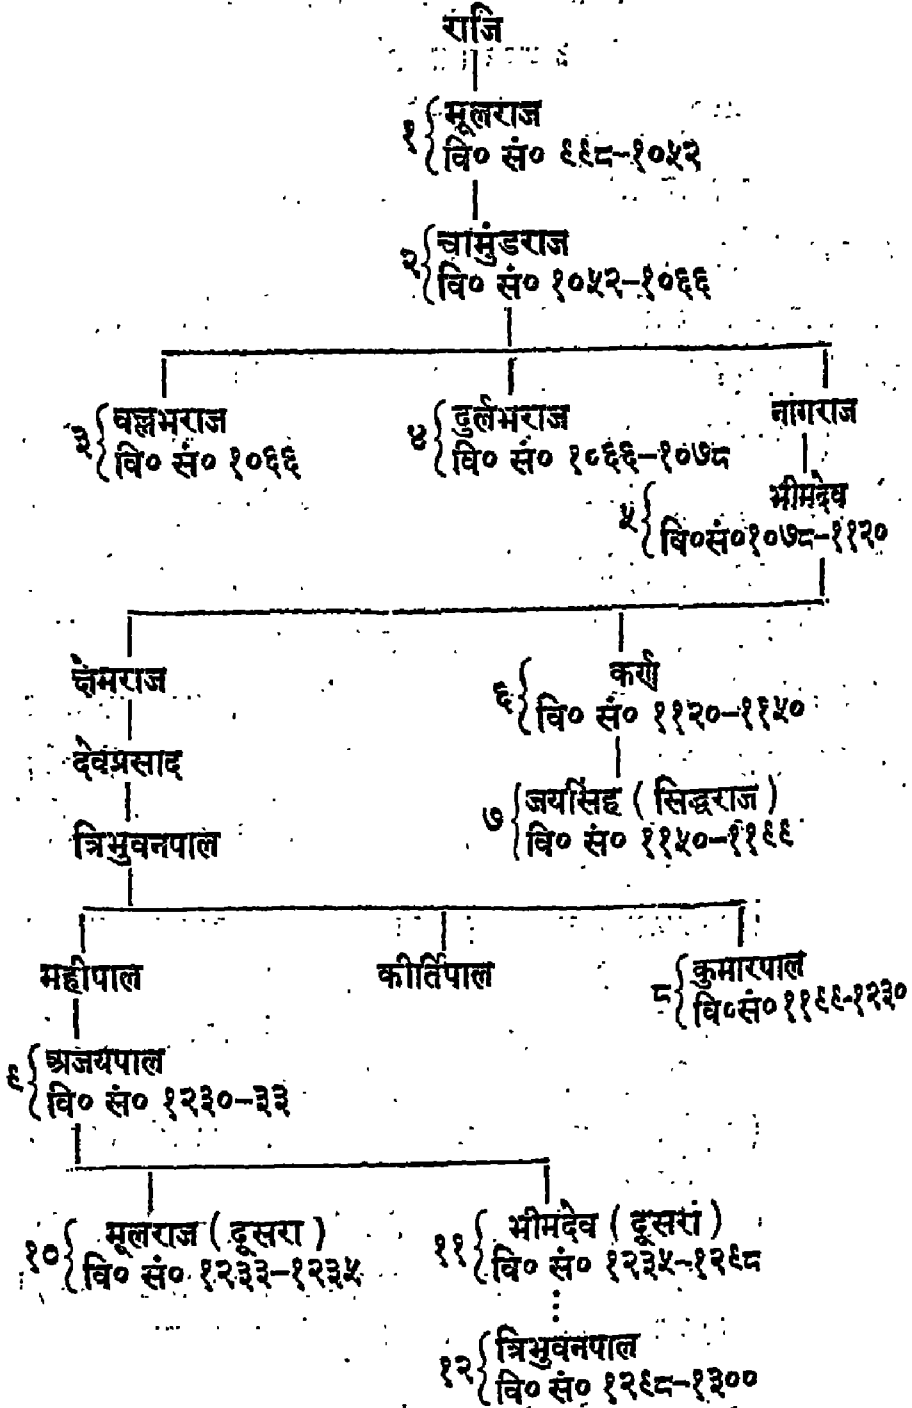 राजि
१ { मूलराज
वि० सं० ९९८-१०५२
२ { चामुंडराज
वि० सं० १०५२-१०६६
३ { वल्लभराज
वि० सं० १०६६
४ { दुर्लभराज
वि० सं० १०६६-१०७८
नागराज
५ { भीमदेव
वि०सं०१०७८-११२०
क्षेमराज
६ { कर्ण
वि० सं० ११२०-११५०
देवप्रसाद
७ { जयसिंह ( सिद्धराज )
वि० सं० ११५०-११९९
त्रिभुवनपाल
महीपाल
कीर्तिपाल
८ { कुमारपाल
वि०सं० ११९९-१२३०
९ { अजयपाल
वि० सं० १२३०-३३
१० { मूलराज ( दूसरा )
वि० सं० १२३३-१२३५
११ { भीमदेव ( दूसरा )
वि० सं० १२३५-१२९८
१२ { त्रिभुवनपाल
वि० सं० १२९८-१३००